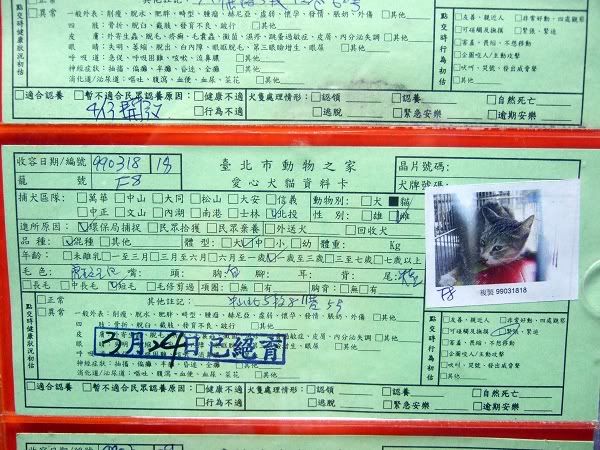 □異常
一般外表：削瘦、脫水、肥胖、畸型、腫瘤、赫尼亞、虛弱、懷孕、發情、脹奶、外傷 □其他
四 肢：骨折、脫臼、截肢、發育不良、跛行 □其他
皮 膚：外寄生蟲、脫毛、疥癬、毛囊蟲、黴菌、濕疹、跳蚤過敏症、皮屑、內分泌失調 □其他
眼 睛：失明、萎縮、脫出、白內障、眼瞼脫毛、第三眼瞼增生、眼屎 □其他
呼 吸 道：急促、呼吸困難、咳嗽、流鼻膿 □其他
神經症狀：抽搐、偏癱、半癱、昏迷、全癱 □其他
消化道/泌尿道：嘔吐、腹瀉、血便、血尿、莖花 □其他
點交時健康狀況初估
點交時行為初估
□友善、親近人 □非常好動、四處觀
□可碰觸及撫摸 □緊張、緊迫
□害羞、畏縮、不想移動
□企圖咬人/主動攻擊
□吠叫、哭號、發出威脅聲
□其他
□適合認養 □暫不適合民眾認養原因：□健康不適 □行為不適
犬隻處理情形：□認領 □認養 □自然死亡
□逃脫 □緊急安樂 □逾期安樂
收容日期/編號 990318 18
臺北市動物之家
晶片號碼：
籠 號 F8
愛心犬貓資料卡
犬牌號碼：
捕犬區隊：□萬華 □中山 □大同 □松山 □大安 □信義 動物別：□犬 ■貓
□中正 □文山 □內湖 □南港 □士林 ☑北投 性 別：□雄 ☑雌
進所原因：☑環保局捕捉 □民眾拾獲 □民眾棄養 □外送犬 □回收犬
品 種：☑混種 □其他 體 型：□大 ☑中 □小 □幼 體重： Kg
年齡：□未離乳 □一至三月 □三月至六月 □六月至一歲 ☑一歲至三歲 □三至七歲 □七歲以上
毛 色： 嘴： 頭： 胸： 腳： 耳： 背： 尾：
□長毛 □中長毛 ☑短毛 □毛修剪過 項圈：□無 □有 胸背：□無 □有
F8
複製 99031818
點交時健康狀況初估
□正常 其他註記：
□異常
一般外表：削瘦、脫水、肥胖、畸型、腫瘤、赫尼亞、虛弱、懷孕、發情、脹奶、外傷 □其他
四 肢：骨折、脫臼、截肢、發育不良、跛行 □其他
3月24日已絕育
神經症狀：抽搐、偏癱、半癱、昏迷、全癱 □其他
消化道/泌尿道：嘔吐、腹瀉、血便、血尿、莖花 □其他
點交時行為初估
□友善、親近人 □非常好動、四處觀
□可碰觸及撫摸 ☑緊張、緊迫
□害羞、畏縮、不想移動
□企圖咬人/主動攻擊
□吠叫、哭號、發出威脅聲
□其他
□適合認養 □暫不適合民眾認養原因：□健康不適 □行為不適
犬隻處理情形：□認領 □認養 □自然死亡
□逃脫 □緊急安樂 □逾期安樂